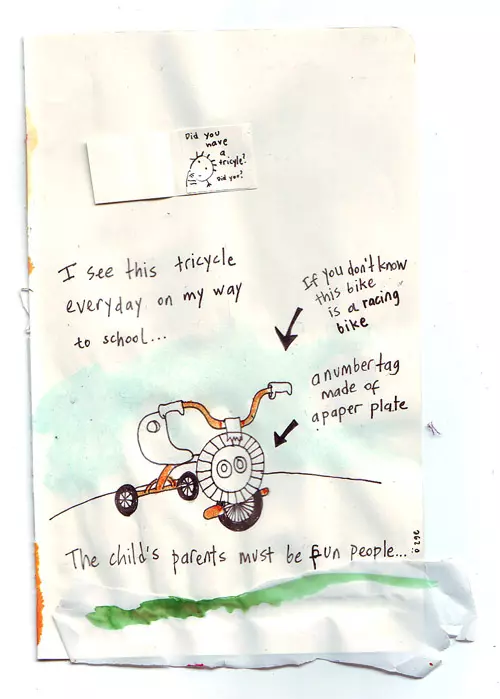 Did you
have
a
tricyle?
Did you?
I see this tricycle
everyday on my way
to school...
If you don't know
this bike
is a racing
bike
a number tag
made of
a paper plate
00
The child's parents must be fun people...